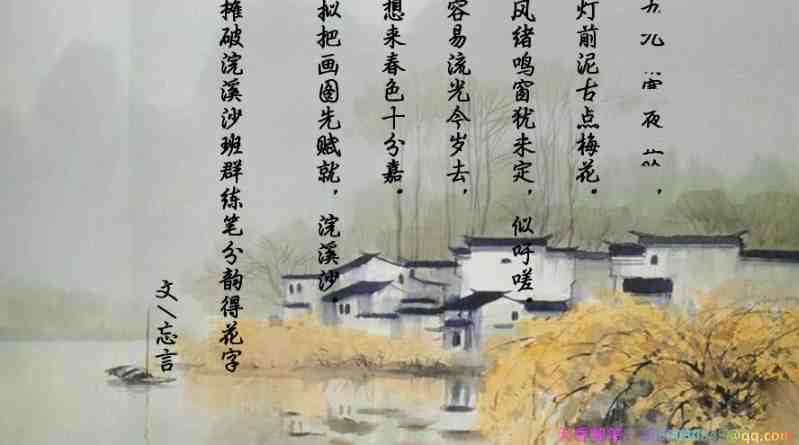 九 夜 ，
灯前泥古点梅花。
风绪鸣窗犹未定，似吁嗟。
容易流光今岁去，
想来春色十分嘉。
拟把画图先赋就，浣溪沙。
摊破浣溪沙班群练笔分韵得花字
文\忘言
@qq.com